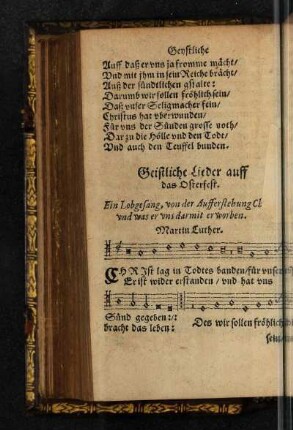 Geystliche
Auff daß er vns ja fromme mächt/
Vnd mit jhm in sein Reiche brächt/
Auß der sündtlichen gstalt:
Darumb wir sollen fröhlich sein/
Daß vnser Seligmacher fein/
Christus hat vberwunden/
Für vns der Sünden grosse noth/
Darzu die Hölle vnd den Todt/
Vnd auch den Teuffel bunden.
Geistliche Lieder auff
das Osterfest.
Ein Lobgesang, von der Aufferstehung C
vnd was er vns darmit erworben.
Martin Luther.
CHRIst lag in Todtes banden/für vnser
Er ist wider erstanden / vnd hat vns
Sünd gegeben:/:
bracht das leben: Des wir sollen fröhlich
sein/